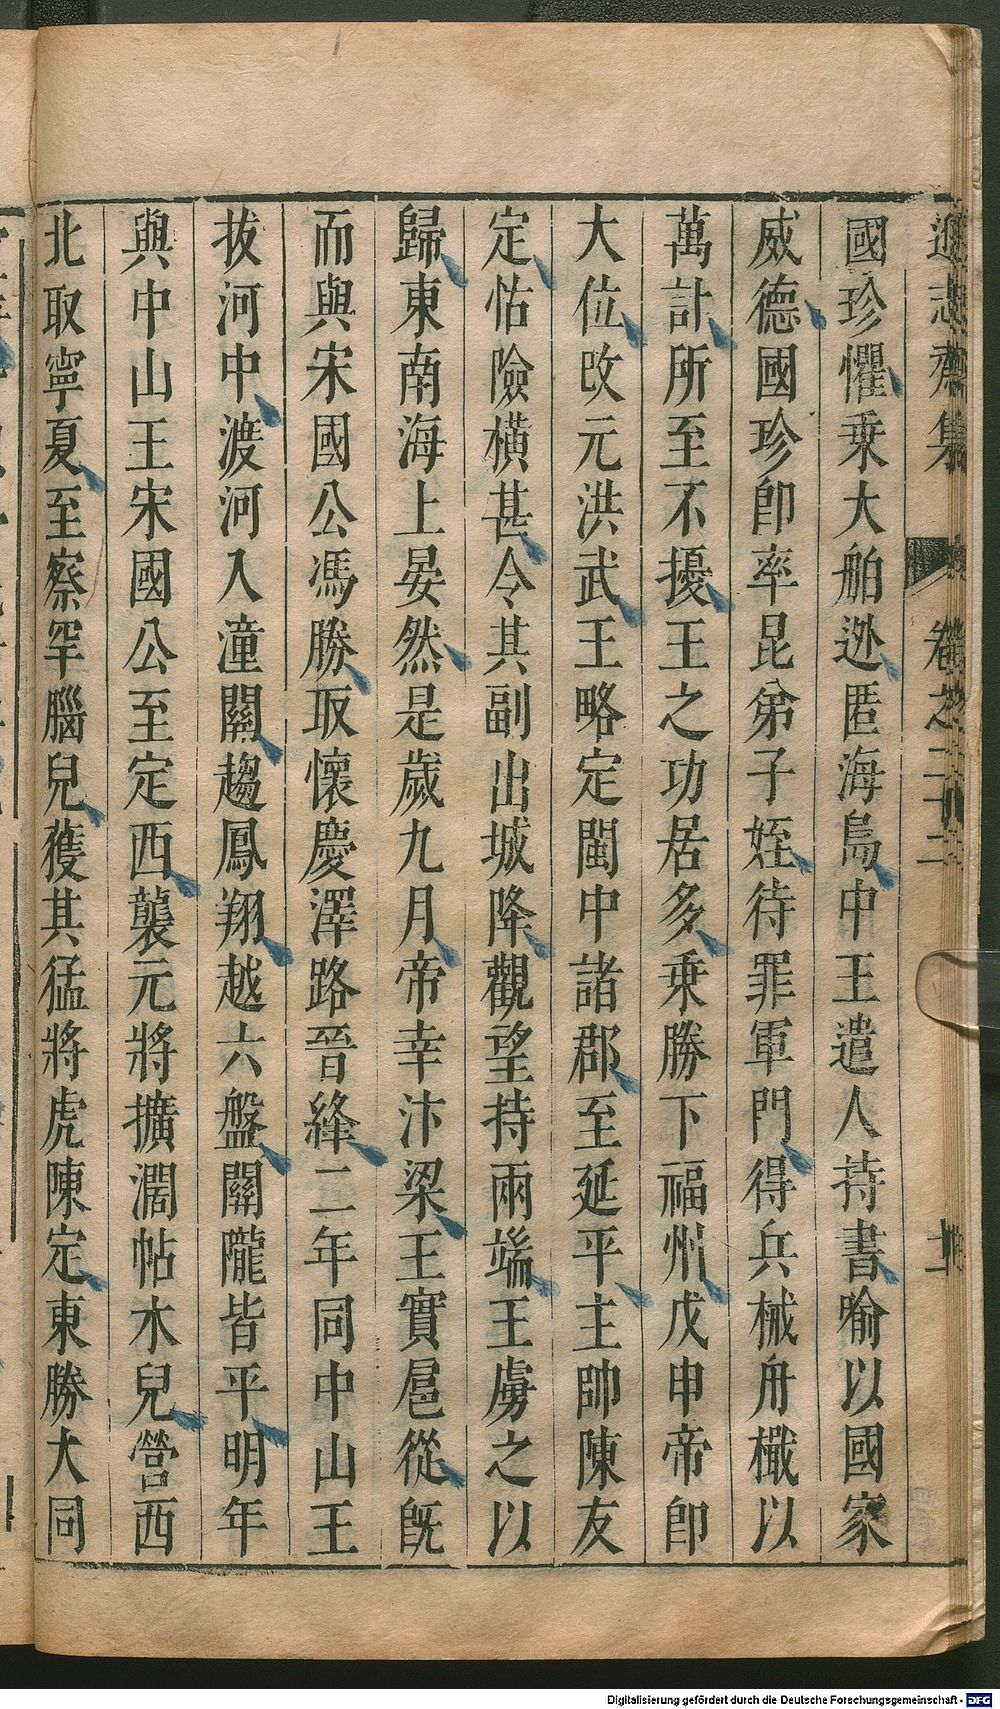 遜志齋集 卷之二十二 十一
國珍懼乗大舶逊匿海島中王遣人持書喻以國家
威德國珍卽率昆弟子姪待罪軍門得兵械舟檝以
萬計所至不擾王之功居多乗勝下福州戊申帝卽
大位改元洪武王略定閩中諸郡至延平主帥陳友
定怙險橫甚令其副出城降觀望持兩端王虜之以
歸東南海上晏然是歲九月帝幸汴梁王實扈從旣
而與宋國公馮勝取懷慶澤路晉絳二年同中山王
拔河中渡河入潼關趨鳳翔越六盤關隴皆平明年
與中山王宋國公至定西襲元將擴濶帖木兒營西
北取寧夏至察罕腦兒獲其猛將虎陳定東勝大同
Digitalisierung gefördert durch die Deutsche Forschungsgemeinschaft - DFG